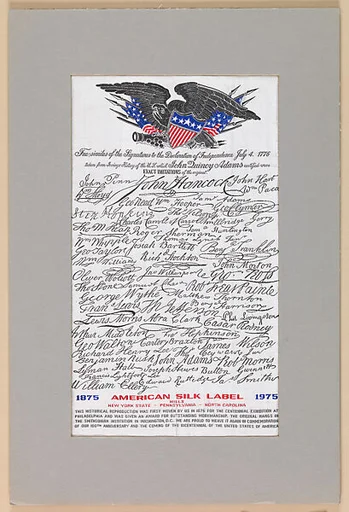 Fac-similes of the Signatures to the Declaration of Independence July 4. 1776
John Quincy Adams
EXACT IMITATIONS of the original
John Penn John Hancock John Hart
Wm Paca
Geo Read Wm Hooper Sam Adams
Step Hopkins
Charles Carroll of Carrollton Elbridge Gerry
Roger Sherman Huntington
Wm Whipple
Geo Taylor Josiah Bartlett Benj Franklin
Wm Williams Rich Stockton John Morton
Oliver Wolcott Geo Ross
Thos Stone Samuel Chase Robt Treat Paine
George Wythe Matthew Thornton
Fran Lewis Benj Harrison
Lewis Morris Abra Clark Caesar Rodney
Arthur Middleton Fras Hopkinson
Geo Walton Carter Braxton James Wilson
Richard Henry Lee Tho Heyward Junr
Benjamin Rush John Adams Robt Morris
Lyman Hall Joseph Hewes Button Gwinnett
Francis Lightfoot Lee
William Ellery Edward Rutledge Jas Smith
1875 AMERICAN SILK LABEL 1975
MILLS
NEW YORK STATE - PENNSYLVANIA - NORTH CAROLINA
THIS HISTORICAL REPRODUCTION WAS FIRST WOVEN BY US IN 1876 FOR THE CENTENNIAL EXHIBITION AT
PHILADELPHIA AND WAS GIVEN AN AWARD FOR OUTSTANDING WORKMANSHIP. THE ORIGINAL HANGS IN
THE SMITHSONIAN INSTITUTION IN WASHINGTON, D.C. WE ARE PROUD TO WEAVE IT AGAIN IN COMMEMORATION
OF OUR 100TH ANNIVERSARY AND THE COMING OF THE BICENTENNIAL OF THE UNITED STATES OF AMERICA